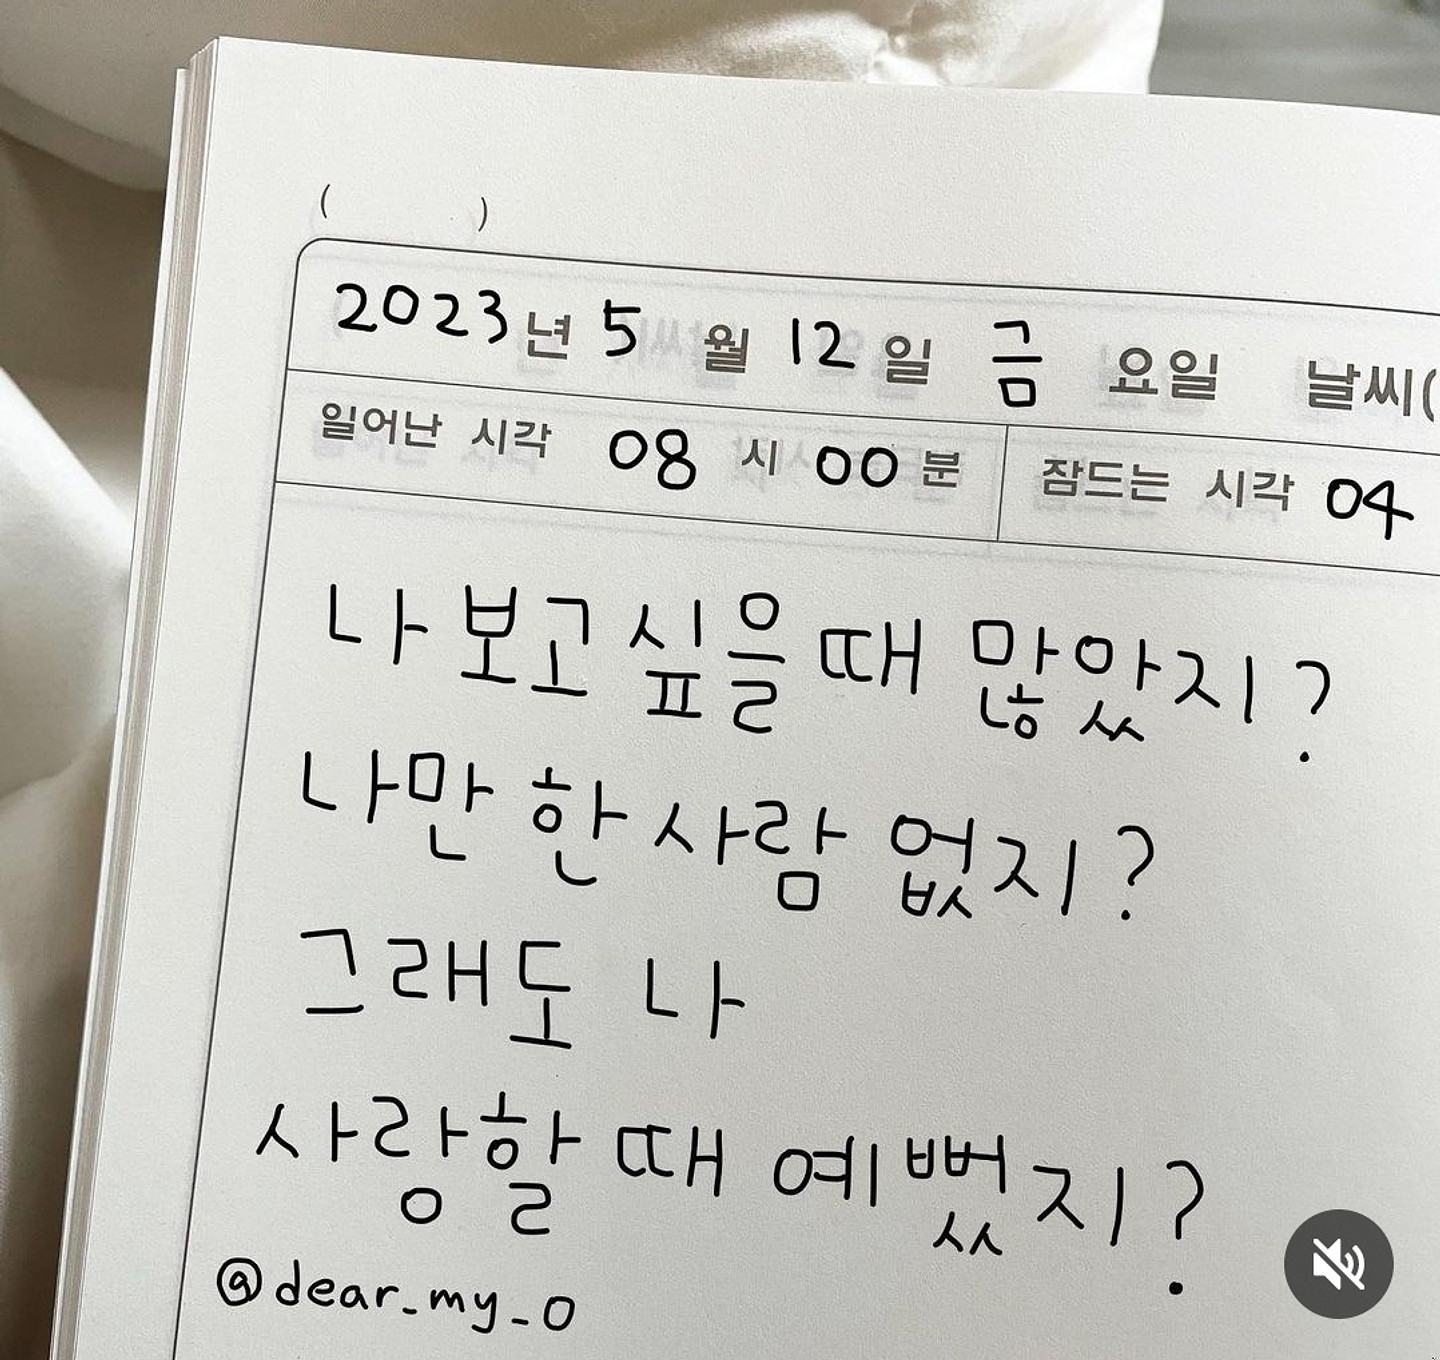 ( )
2023년 5 월 12 일 금 요일 날씨(
일어난 시각 08 시 00 분 잠드는 시각 04
나 보고 싶을 때 많았지?
나만 한 사람 없지?
그래도 나
사랑할 때 예뻤지?
@dear_my_o